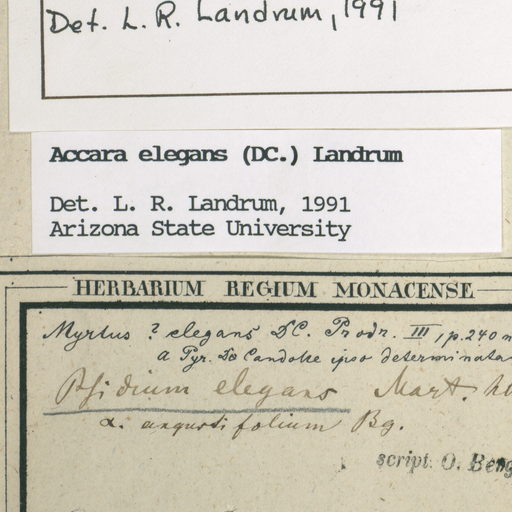 Det. L. R. Landrum, 1991
Accara elegans (DC.) Landrum
Det. L. R. Landrum, 1991
Arizona State University
HERBARIUM REGIUM MONACENSE
Myrtus ? elegans DC. Prodr. III, p. 240 n
a Pyr. De Candolle ipso determinata
Psidium elegans Mart.
α. angustifolium Bg.
script. O. Berg